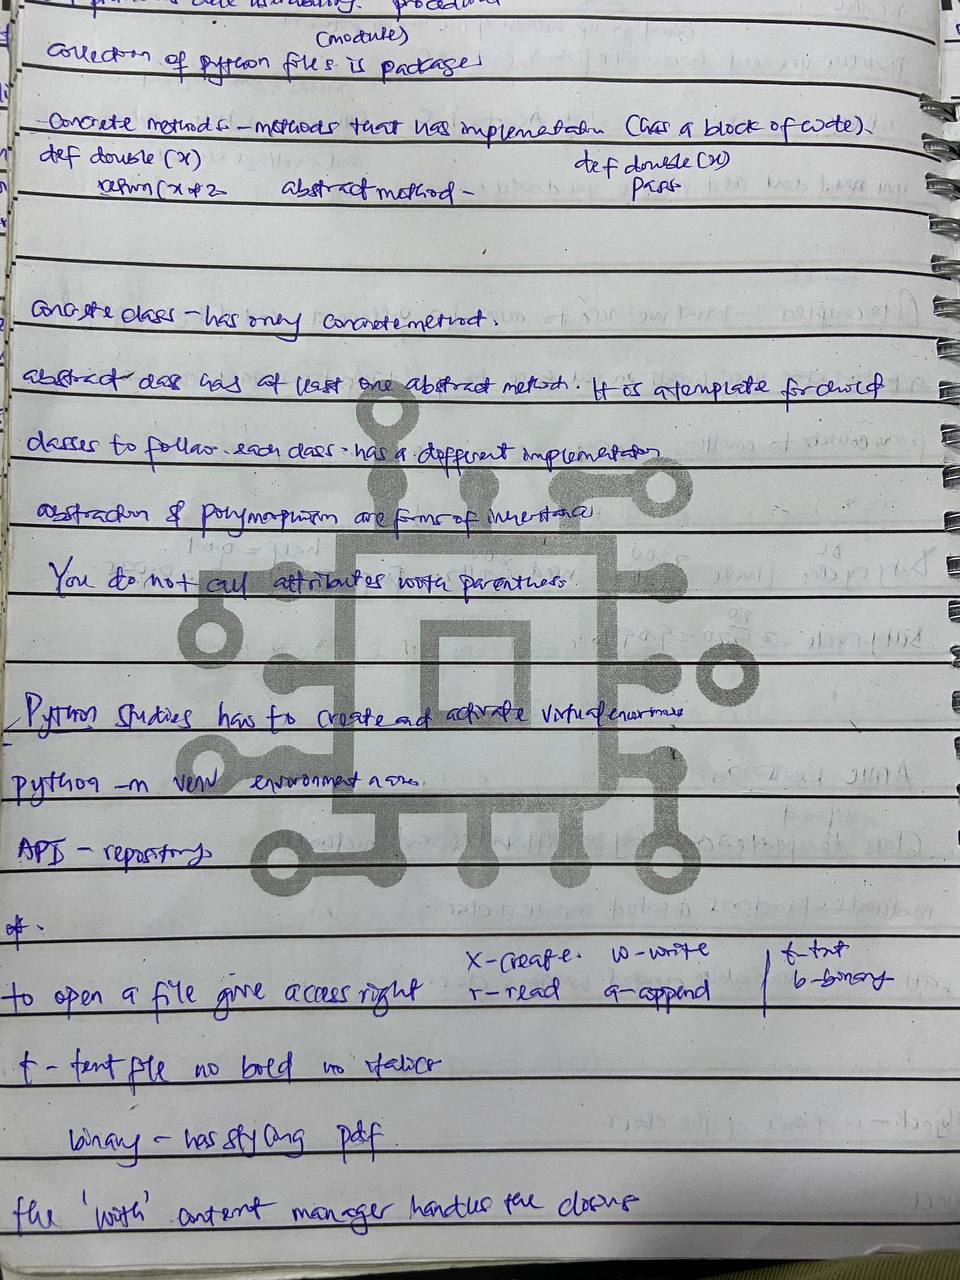 (module)
Collection of python files is packages
- Concrete methods - methods that has implementation (has a block of code).
def double (x)
return (x*2
abstract method -
def double (x)
pass
Concrete class - has only concrete method.
abstract class has at least one abstract method. It is a template for child
classes to follow. each class has a different implementation
abstraction & polymorphism are forms of inheritance
You do not call attributes with parentheses
Python studies has to create and activate virtual
python -m venv environment name.
API - repository
to open a file give access right
x-create. w-write
r-read a-append
t-txt
b-binary
t - text file no bold no italics
binary - has styling pdf.
the 'with' content manager handles the closing